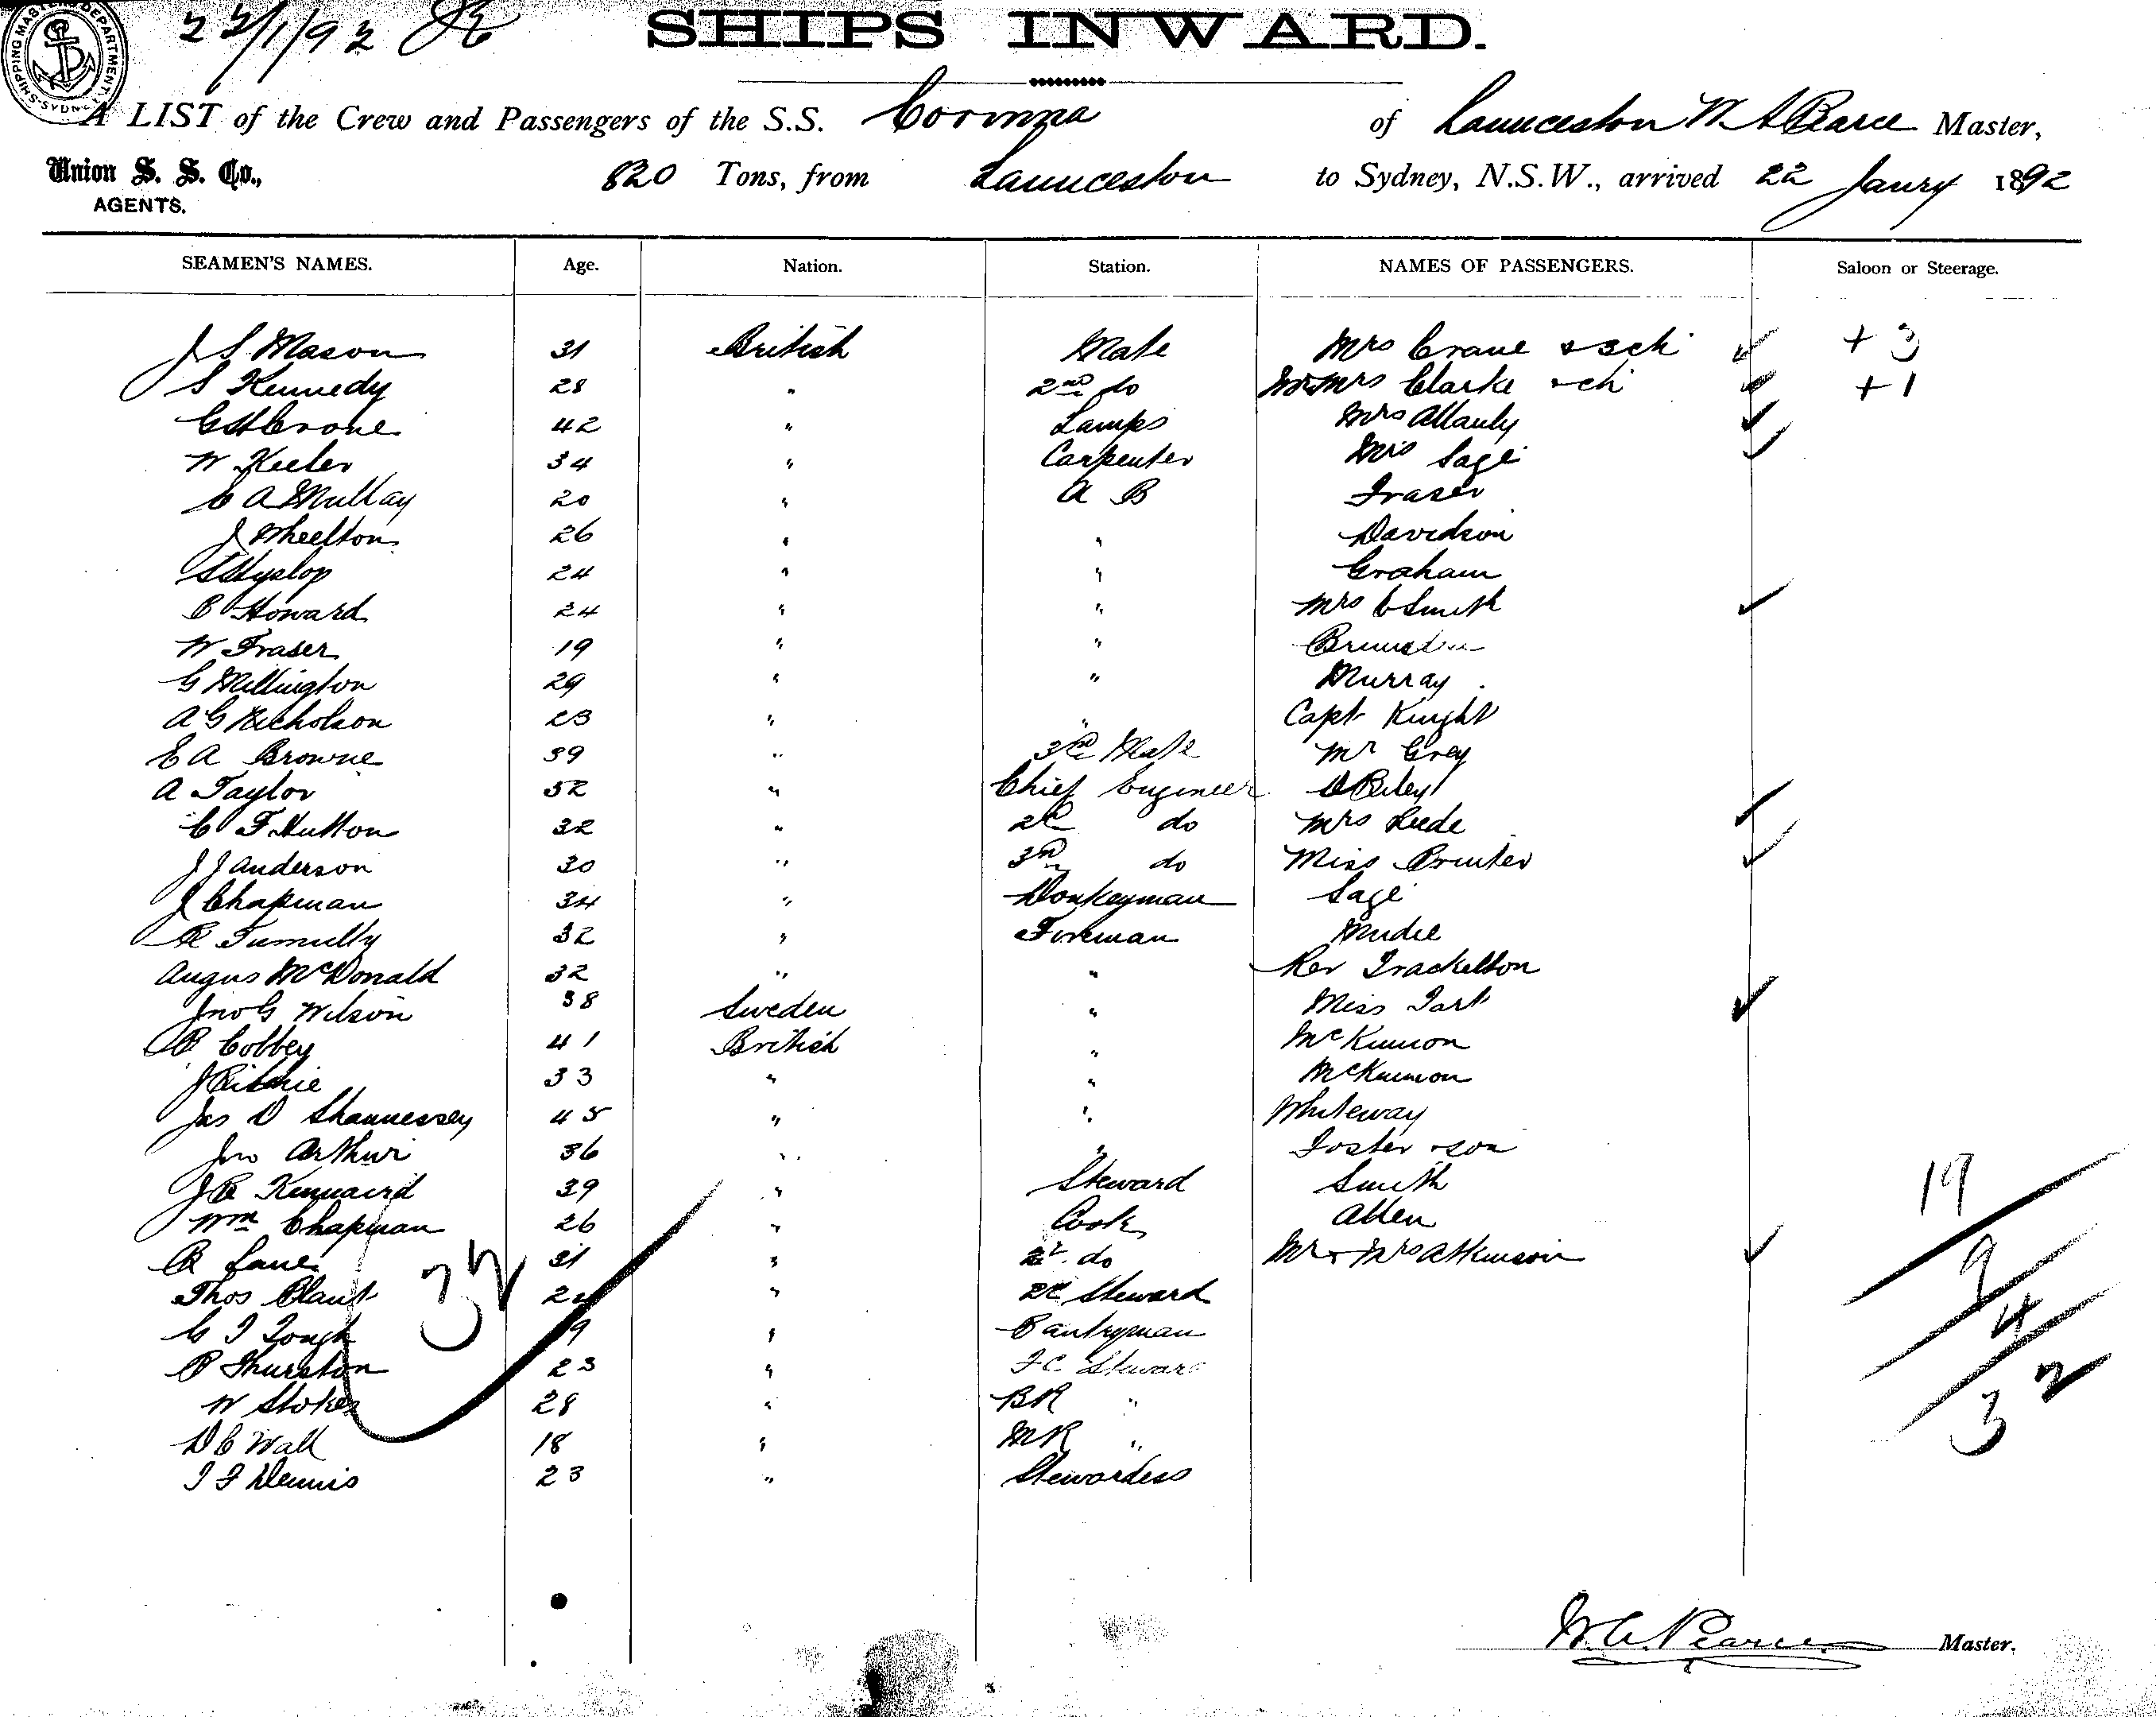 SHIPPING MASTER'S DEPARTMENT SYDNEY
22/1/92
SHIPS INWARD.
A LIST of the Crew and Passengers of the S.S. Corinna of Launceston W A Pearce Master,
Union S. S. Co., 820 Tons, from Launceston to Sydney, N.S.W., arrived 22 Jany 1892
AGENTS.
SEAMEN'S NAMES. Age. Nation. Station. NAMES OF PASSENGERS. Saloon or Steerage.
J S Mason 31 British Mate Mrs Crane & 3 ch + 3
S Kennedy 28 " 2nd do Mr & Mrs Clarke & ch + 1
G H Crone 42 " Lamps Mrs
W Keeler 34 " Carpenter Mrs Sage
C A Mullay 20 " A B Fraser
J Wheelton 26 " " Davidson
Hyslop 24 " " Graham
C Howard 24 " " Mrs C Smith
W Fraser 19 " "
G Millington 29 " " Murray
A G Nicholson 23 " " Capt Knight
E A Browne 39 " 3rd Mate Mr Grey
A Taylor 52 " Chief Engineer
C F Hutton 32 " 2d do Mrs
J J Anderson 30 " 3rd do Miss
J Chapman 34 " Donkeyman Sage
R Tumulty 32 " Fireman Mudie
Angus McDonald 32 " " Rev Trackelton
Jno G Wilson 38 Sweden " Miss Tart
Cobbey 41 British " McKinnon
J Ritchie 33 " " McKinnon
Jas O Shannessey 45 " " Whiteway
Jno Arthur 36 " " Foster & son
J R Kinnaird 39 " Steward Smith
Wm Chapman 26 " Cook Allen
R Lane 31 " 2d do Mr & Mrs Atkinson
Thos Plant 24 " 2d Steward
C J Tough 19 " Pantryman
P Thurston 23 " F C Steward
W Stokes 28 " B R "
D C Wall 18 " M R "
I F Dennis 23 " Stewardess
32
19
9
4
32
W. A. Pearce Master.